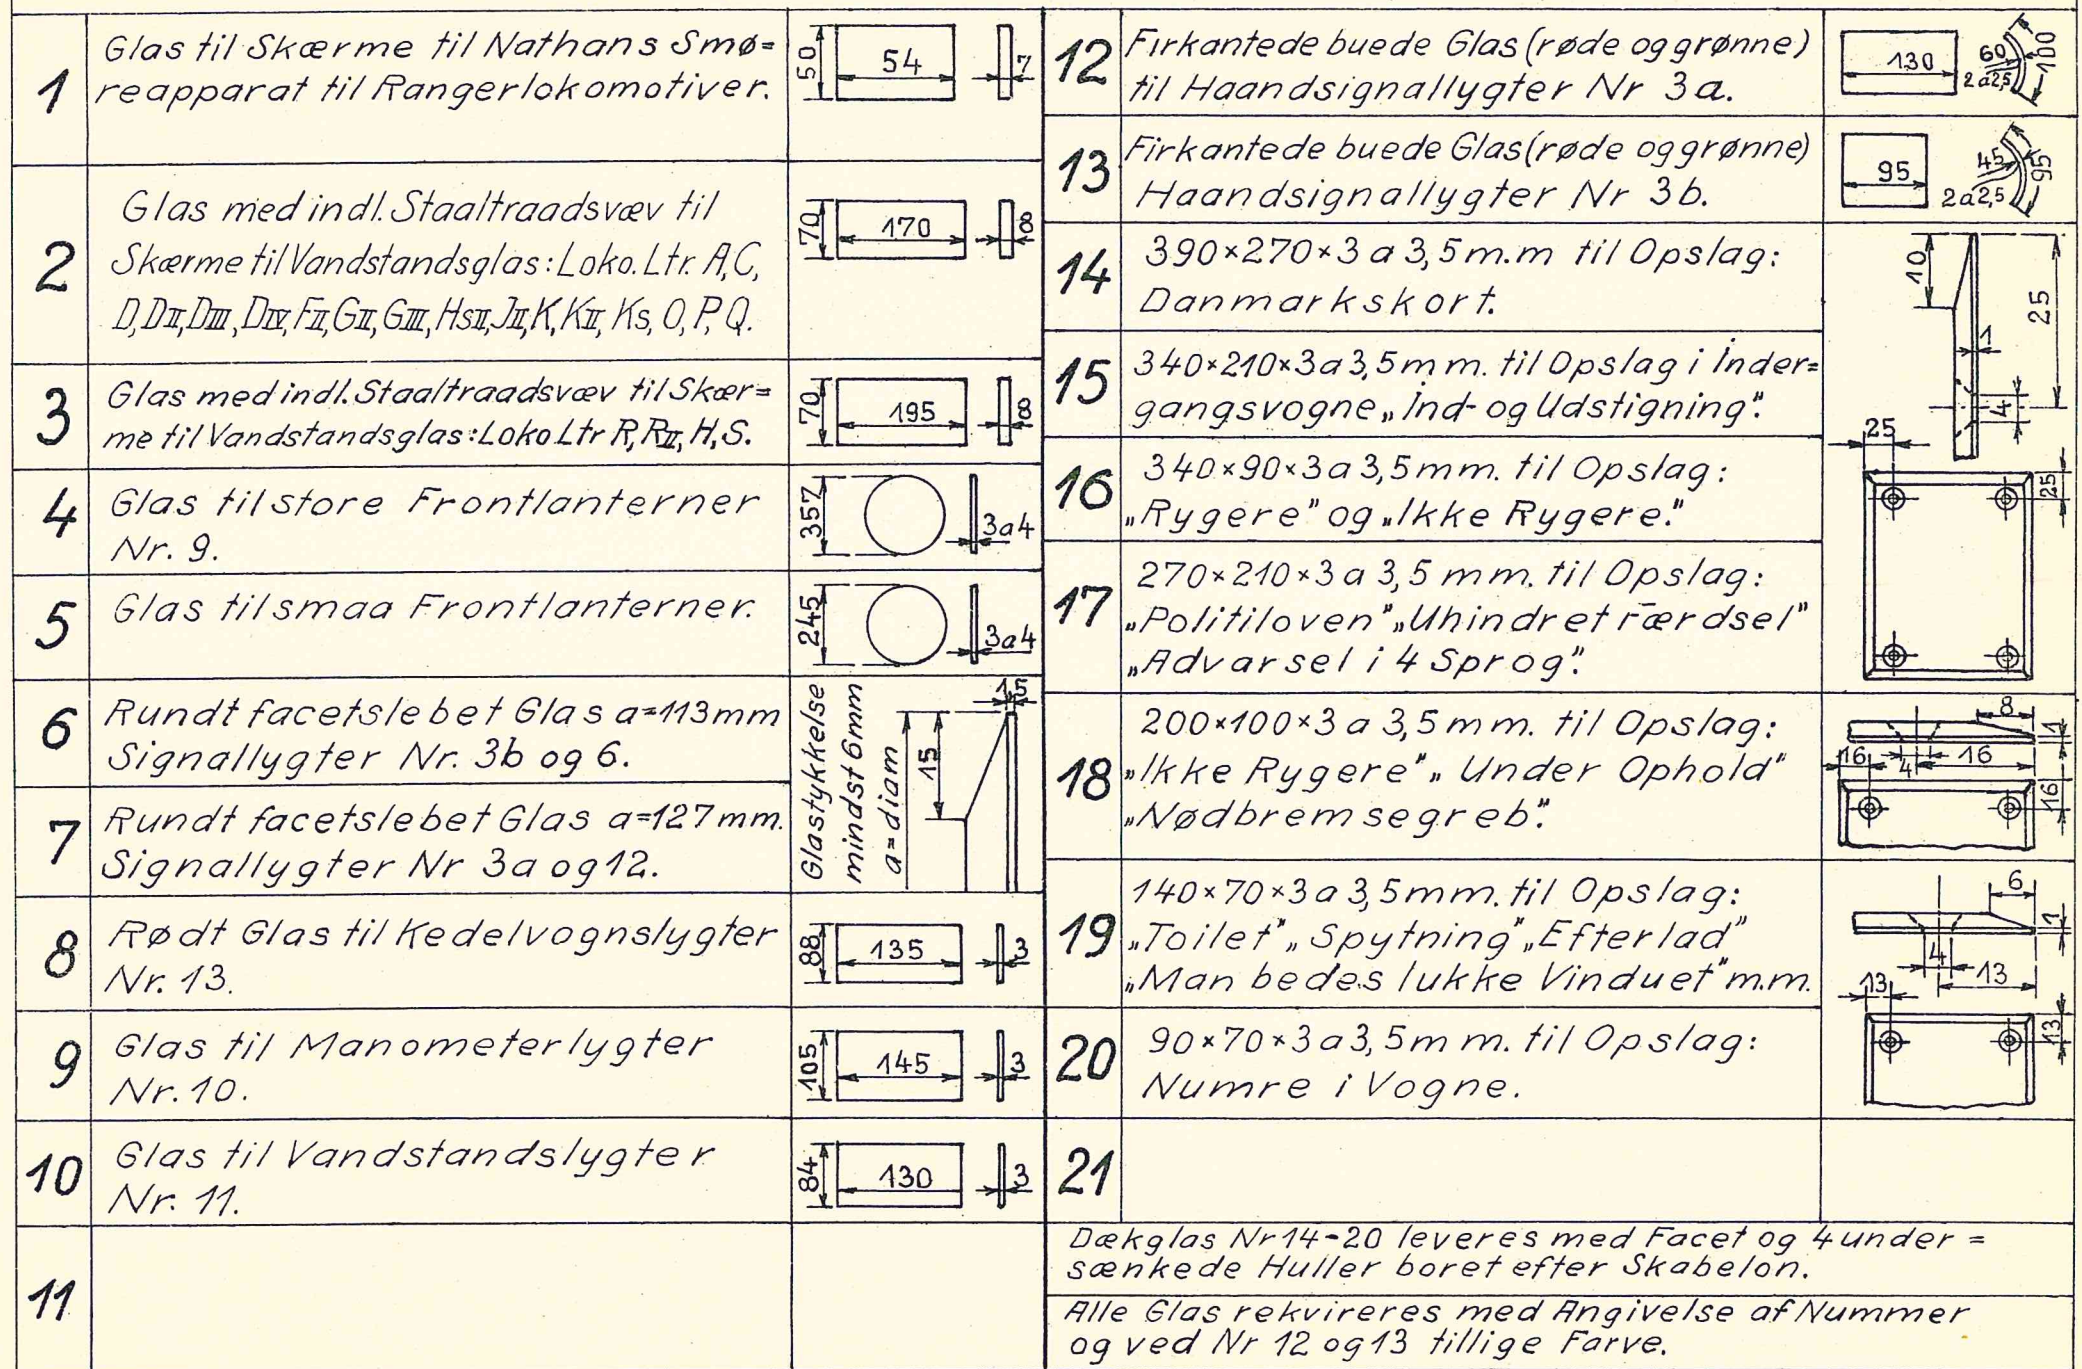 1
Glas til Skærme til Nathans Smø=
reapparat til Rangerlokomotiver.
50
54
7
2
Glas med indl. Staaltraadsvæv til
Skærme til Vandstandsglas: Loko. Ltr. A, C,
D, DII, DIII, DIV, FII, GII, GIII, HsII, JII, K, KII, Ks, O, P, Q.
70
170
8
3
Glas med indl. Staaltraadsvæv til Skær=
me til Vandstandsglas: Loko Ltr R, RII, H, S.
70
195
8
4
Glas til store Frontlanterner
Nr. 9.
357
3 a 4
5
Glas til smaa Frontlanterner.
245
3 a 4
6
Rundt facetslebet Glas a=113 mm
Signallygter Nr. 3b og 6.
7
Rundt facetslebet Glas a=127 mm.
Signallygter Nr 3a og 12.
Glastykkelse
mindst 6 mm
a = diam
15
1,5
8
Rødt Glas til Kedelvognslygter
Nr. 13.
88
135
3
9
Glas til Manometerlygter
Nr. 10.
105
145
3
10
Glas til Vandstandslygter
Nr. 11.
84
130
3
11
12
Firkantede buede Glas (røde og grønne)
til Haandsignallygter Nr 3a.
130
60
100
2 a 2,5
13
Firkantede buede Glas (røde og grønne)
Haandsignallygter Nr 3b.
95
45
95
2 a 2,5
14
390×270×3 a 3,5 m.m til Opslag:
Danmarkskort.
15
340×210×3 a 3,5 mm. til Opslag i Inder=
gangsvogne „Ind- og Udstigning".
16
340×90×3 a 3,5 mm. til Opslag:
„Rygere" og „Ikke Rygere."
17
270×210×3 a 3,5 mm. til Opslag:
„Politiloven" „Uhindret Færdsel"
„Advarsel i 4 Sprog".
10
25
1
4
25
25
18
200×100×3 a 3,5 mm. til Opslag:
„Ikke Rygere" „Under Ophold"
„Nødbremsegreb".
8
1
16
4
16
16
19
140×70×3 a 3,5 mm. til Opslag:
„Toilet" „Spytning" „Efterlad"
„Man bedes lukke Vinduet" m.m.
6
1
4
13
13
13
20
90×70×3 a 3,5 mm. til Opslag:
Numre i Vogne.
21
Dækglas Nr 14-20 leveres med Facet og 4 under=
sænkede Huller boret efter Skabelon.
Alle Glas rekvireres med Angivelse af Nummer
og ved Nr 12 og 13 tillige Farve.